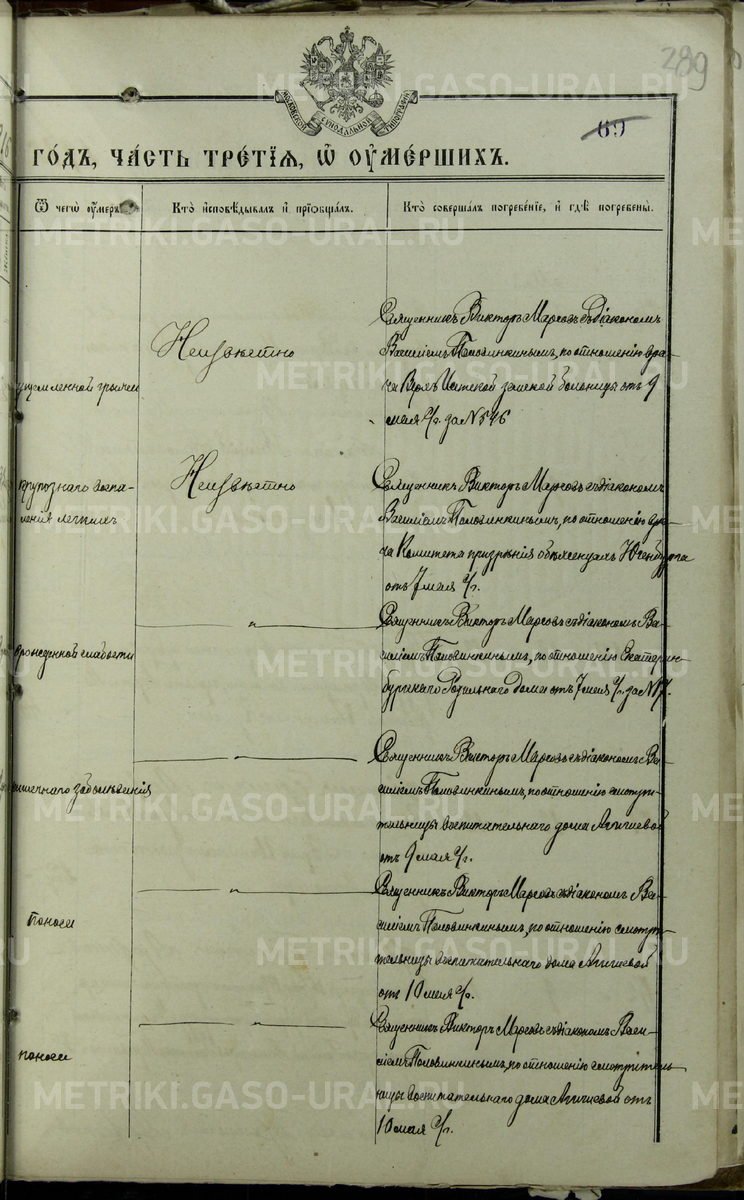 289
69
МОСКОВСКОЙ СѴНОДАЛЬНОЙ ТИПОГРАФІИ
ГО́ДЪ, ЧА́СТЬ ТРЕ́ТІѦ, Ѽ ОУМЕ́РШИХЪ.
Ѿ чегѡ̀ оу́меръ.
Кто̀ и҆сповѣ́дывалъ и҆ прїѡбща́лъ.
Кто̀ соверша́лъ погребе́нїе, и҆ гдѣ̀ погребены̀.
ущемленной грыжи
Неизвѣстно
Священникъ Викторъ Марсовъ съ діакономъ
Василіемъ Половинкинымъ, по отношенію вра-
ча Верхъ Исетской земской больницы отъ 9
мая с/г. за № 546
крупознаго воспа-
ленія легкихъ
Неизвѣстно
Священникъ Викторъ Марсовъ съ діакономъ
Василіемъ Половинкинымъ, по отношенію
Комитета призрѣнія
отъ 7 мая с/г.
врожденной слабости
—"—
Священникъ Викторъ Марсовъ съ діакономъ Ва-
силіемъ Половинкинымъ, по отношенію Екатерин-
бургскаго Родильнаго Дома отъ 7 мая с/г. за № 17.
кишечнаго заболѣванія
—"—
Священникъ Викторъ Марсовъ съ діакономъ Ва-
силіемъ Половинкинымъ, по отношенію смотри-
тельницы воспитательнаго дома
отъ 9 мая с/г.
Поноса
—"—
Священникъ Викторъ Марсовъ съ діакономъ Ва-
силіемъ Половинкинымъ, по отношенію смотри-
тельницы воспитательнаго дома
отъ 10 мая с/г.
поноса
—"—
Священникъ Викторъ Марсовъ съ діакономъ Васи-
ліемъ Половинкинымъ, по отношенію смотритель-
ницы воспитательнаго дома отъ
10 мая с/г.
METRIKI.GASO-URAL.RU